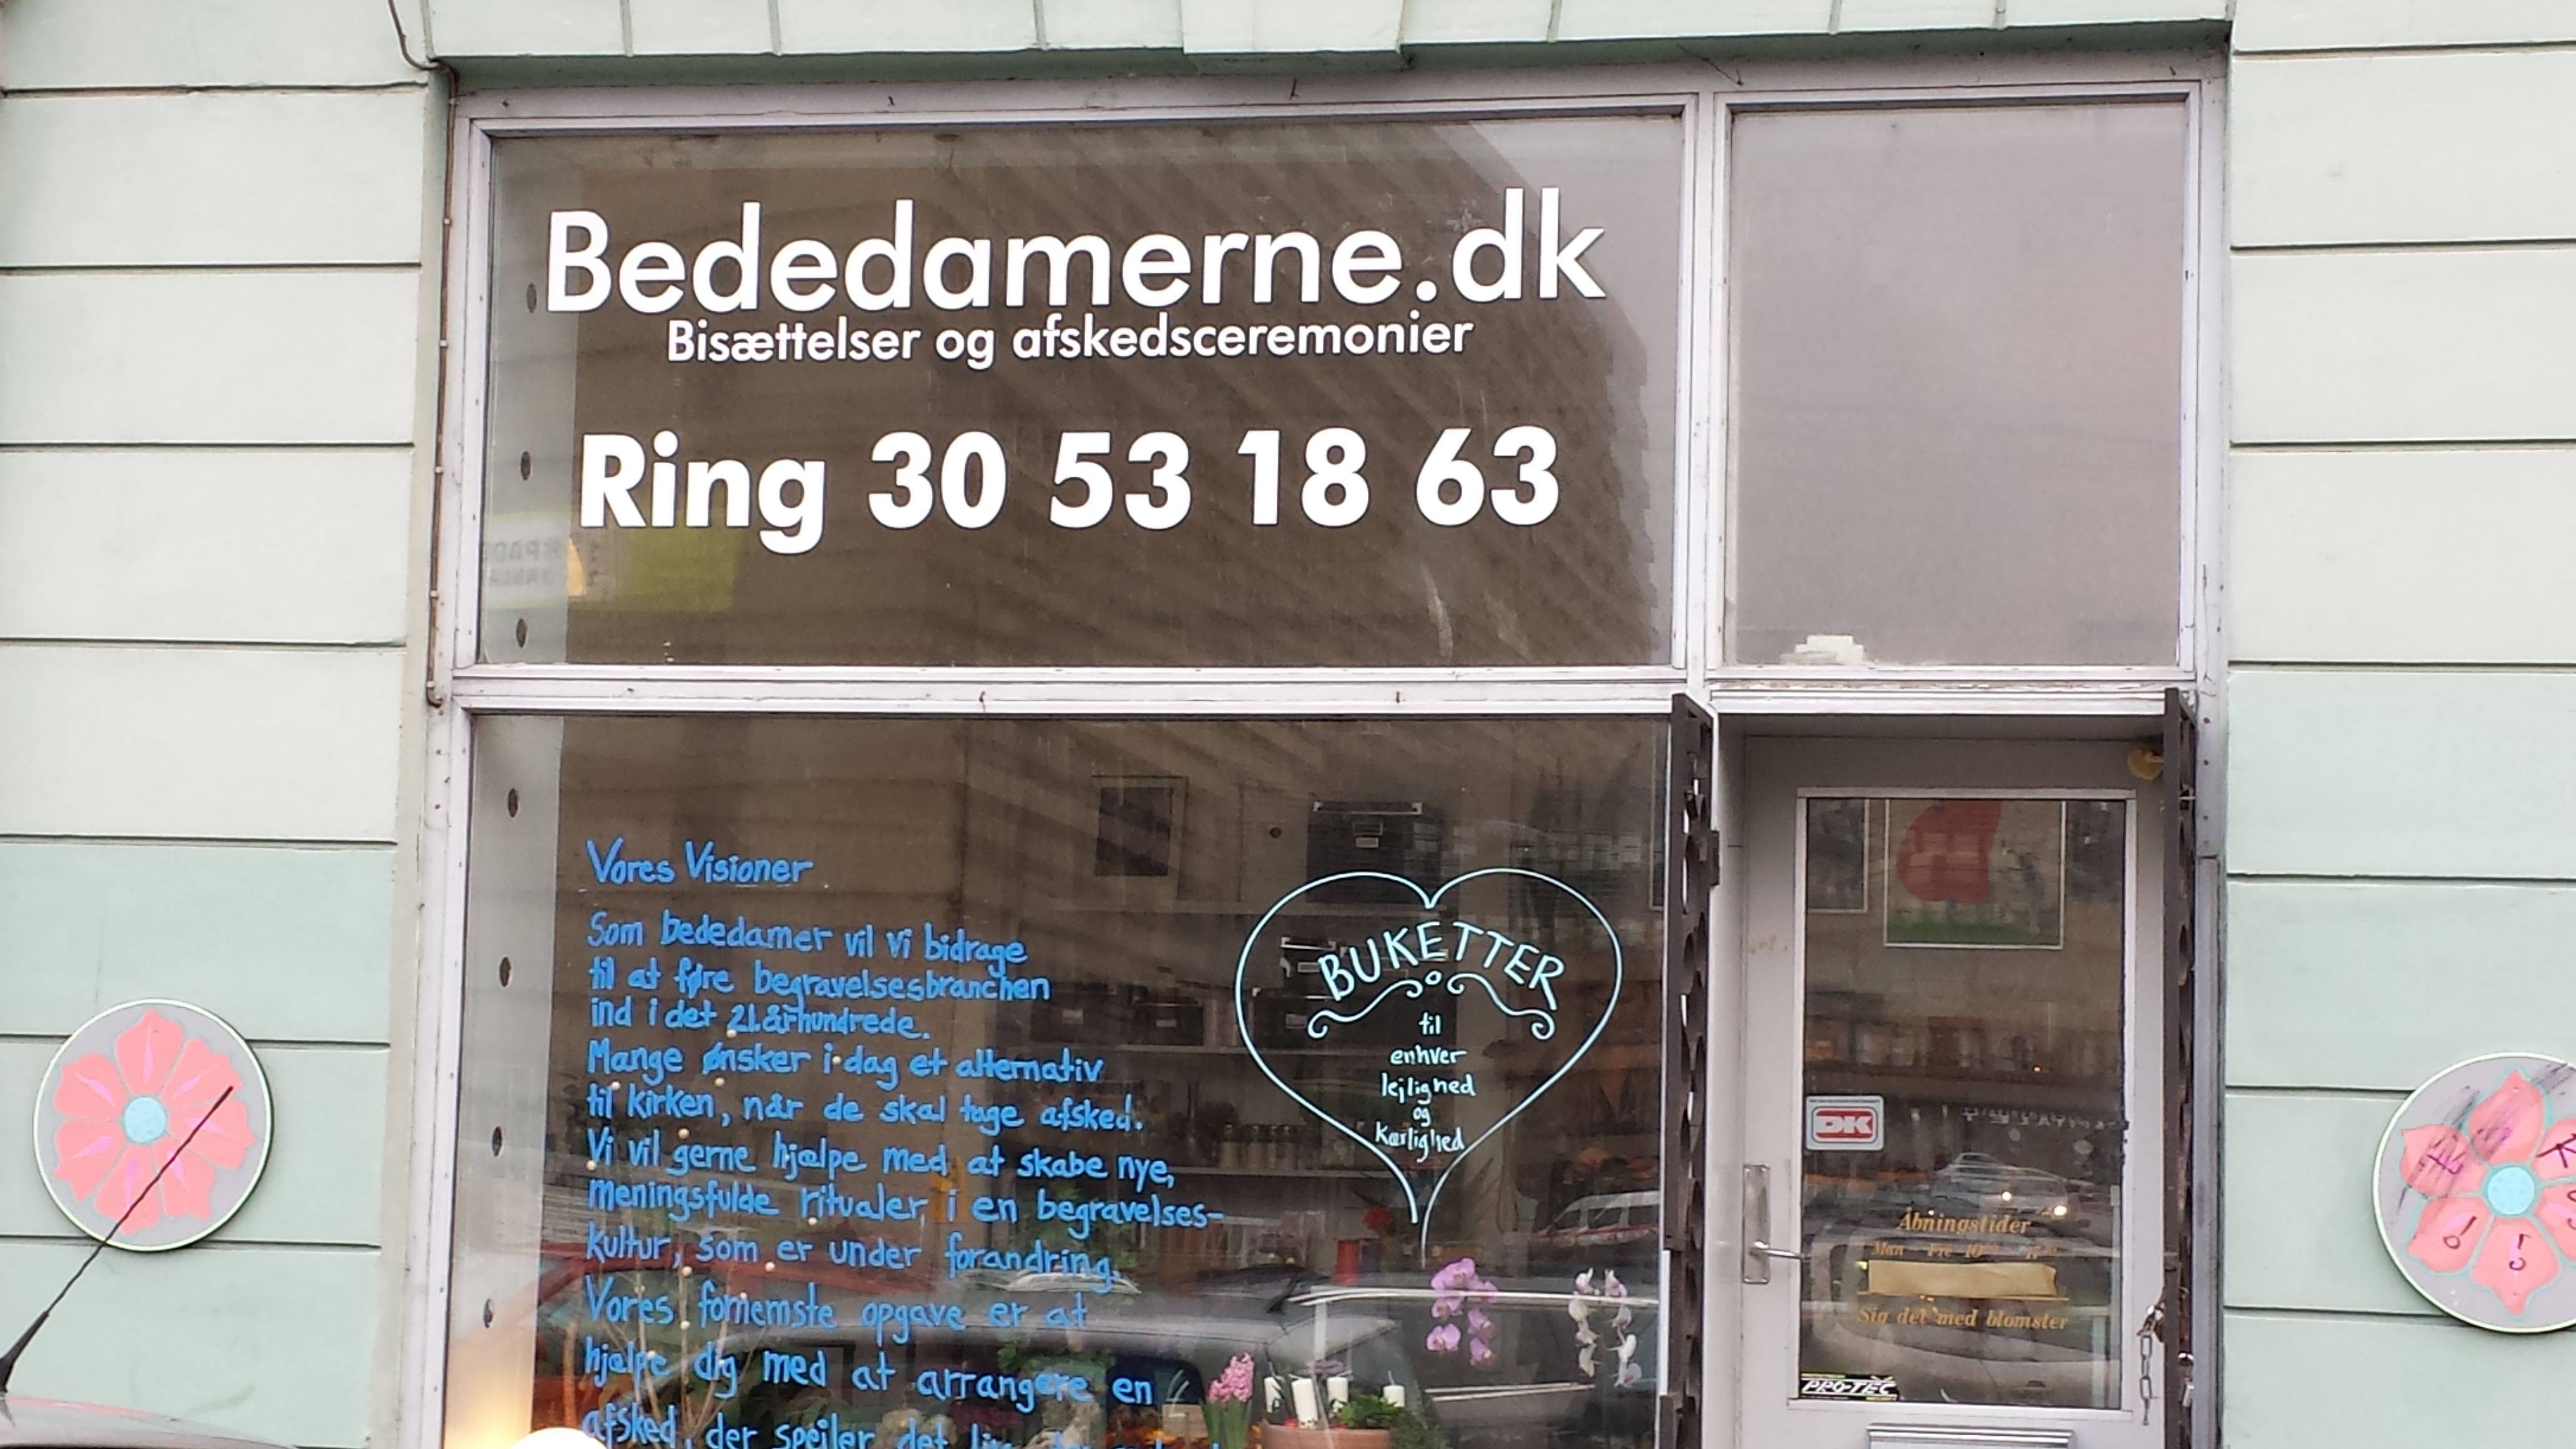 Bededamerne.dk
Bisættelser og afskedsceremonier
Ring 30 53 18 63
Vores Visioner
Som bededamer vil vi bidrage
til at føre begravelsesbranchen
ind i det 21.århundrede.
Mange ønsker i dag et alternativ
til kirken, når de skal tage afsked.
Vi vil gerne hjælpe med at skabe nye,
meningsfulde ritualer i en begravelses-
kultur, som er under forandring.
Vores fornemste opgave er at
hjælpe dig med at arrangere en
afsked, der spejler det
BUKETTER
til
enhver
lejlighed
og
Kærlighed
DK
Åbningstider
Man - Fre 10
Sig det med blomster
PRO-TEC